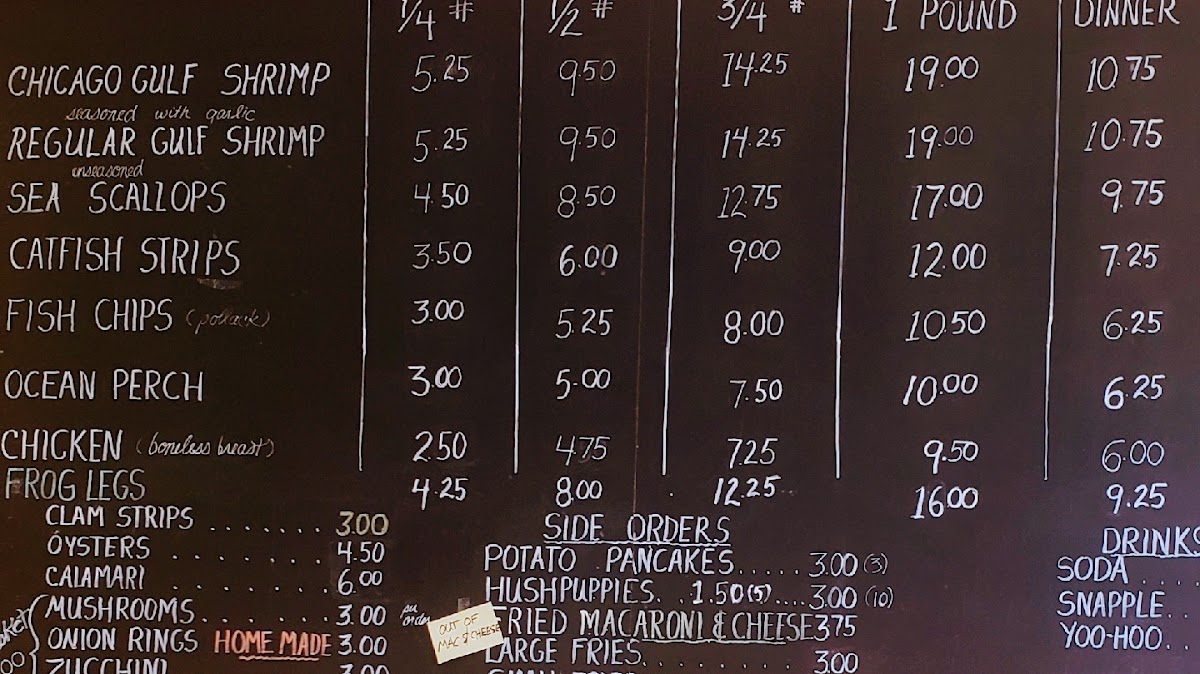 1/4 # 1/2 # 3/4 # 1 POUND DINNER
CHICAGO GULF SHRIMP 5.25 9.50 14.25 19.00 10.75
seasoned with garlic
REGULAR GULF SHRIMP 5.25 9.50 14.25 19.00 10.75
unseasoned
SEA SCALLOPS 4.50 8.50 12.75 17.00 9.75
CATFISH STRIPS 3.50 6.00 9.00 12.00 7.25
FISH CHIPS (pollack) 3.00 5.25 8.00 10.50 6.25
OCEAN PERCH 3.00 5.00 7.50 10.00 6.25
CHICKEN (boneless breast) 2.50 4.75 7.25 9.50 6.00
FROG LEGS 4.25 8.00 12.25 16.00 9.25
CLAM STRIPS . . . . . . . 3.00
OYSTERS . . . . . . . 4.50
CALAMARI . . . . . . . 6.00
MUSHROOMS. . . . . . 3.00 per order
ONION RINGS HOME MADE 3.00
ZUCCHINI 3.00
SIDE ORDERS
POTATO PANCAKES..... 3.00 (3)
HUSHPUPPIES. . 1.50 (5).... 3.00 (10)
OUT OF
MAC & CHEESE
FRIED MACARONI & CHEESE 3.75
LARGE FRIES. . . . . . . . 3.00
DRINKS
SODA . . . .
SNAPPLE . .
YOO-HOO. . .